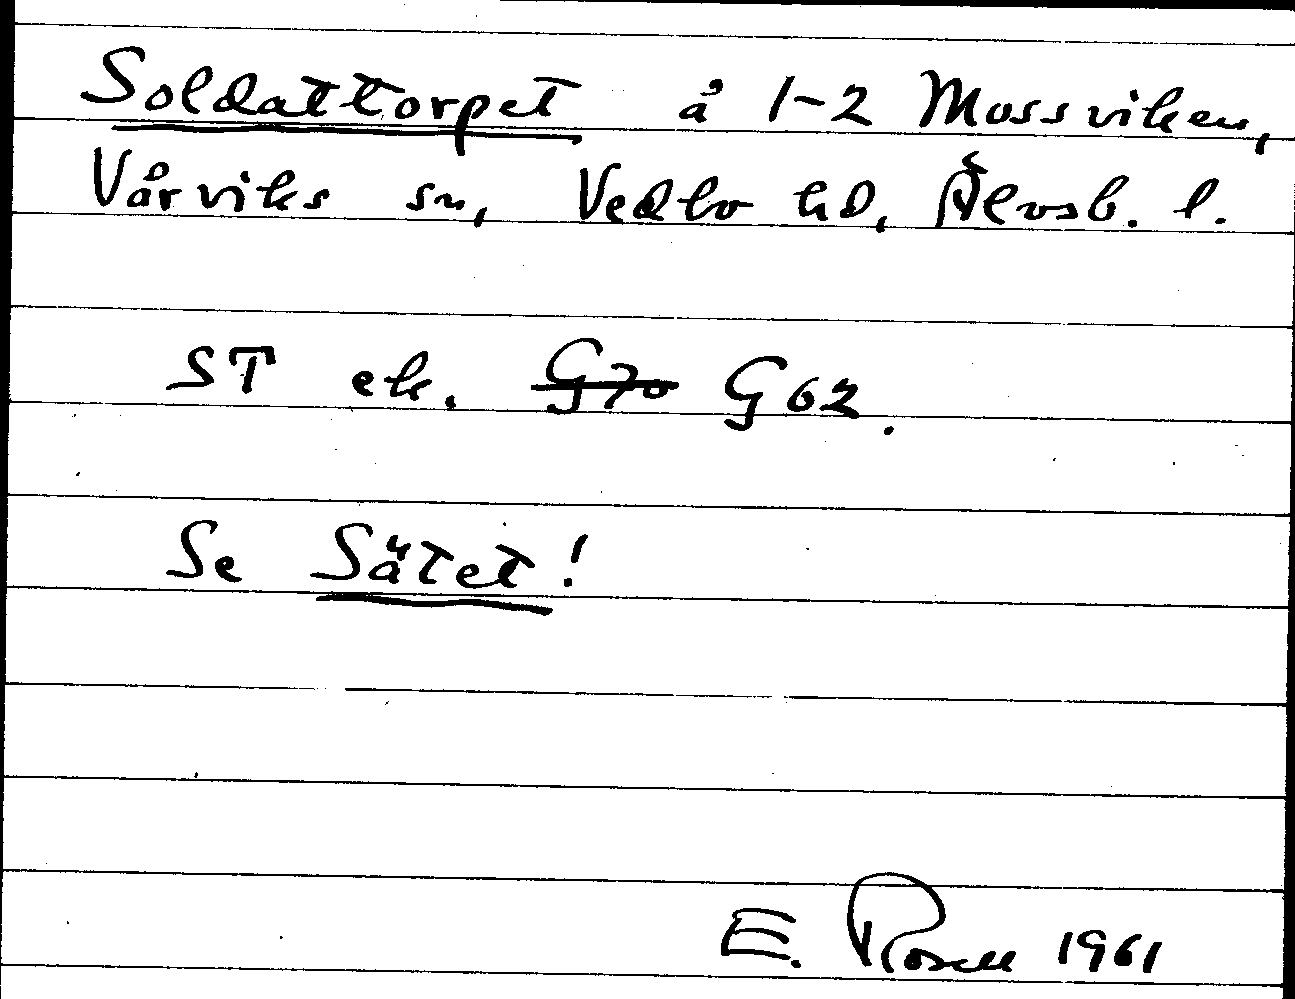 Soldattorpet å 1-2 Mossviken,
Vårviks sn, Vedbo hd, Älvsb. l.
ST ek. G70 G62.
Se Sätet!
E. Rosell 1961